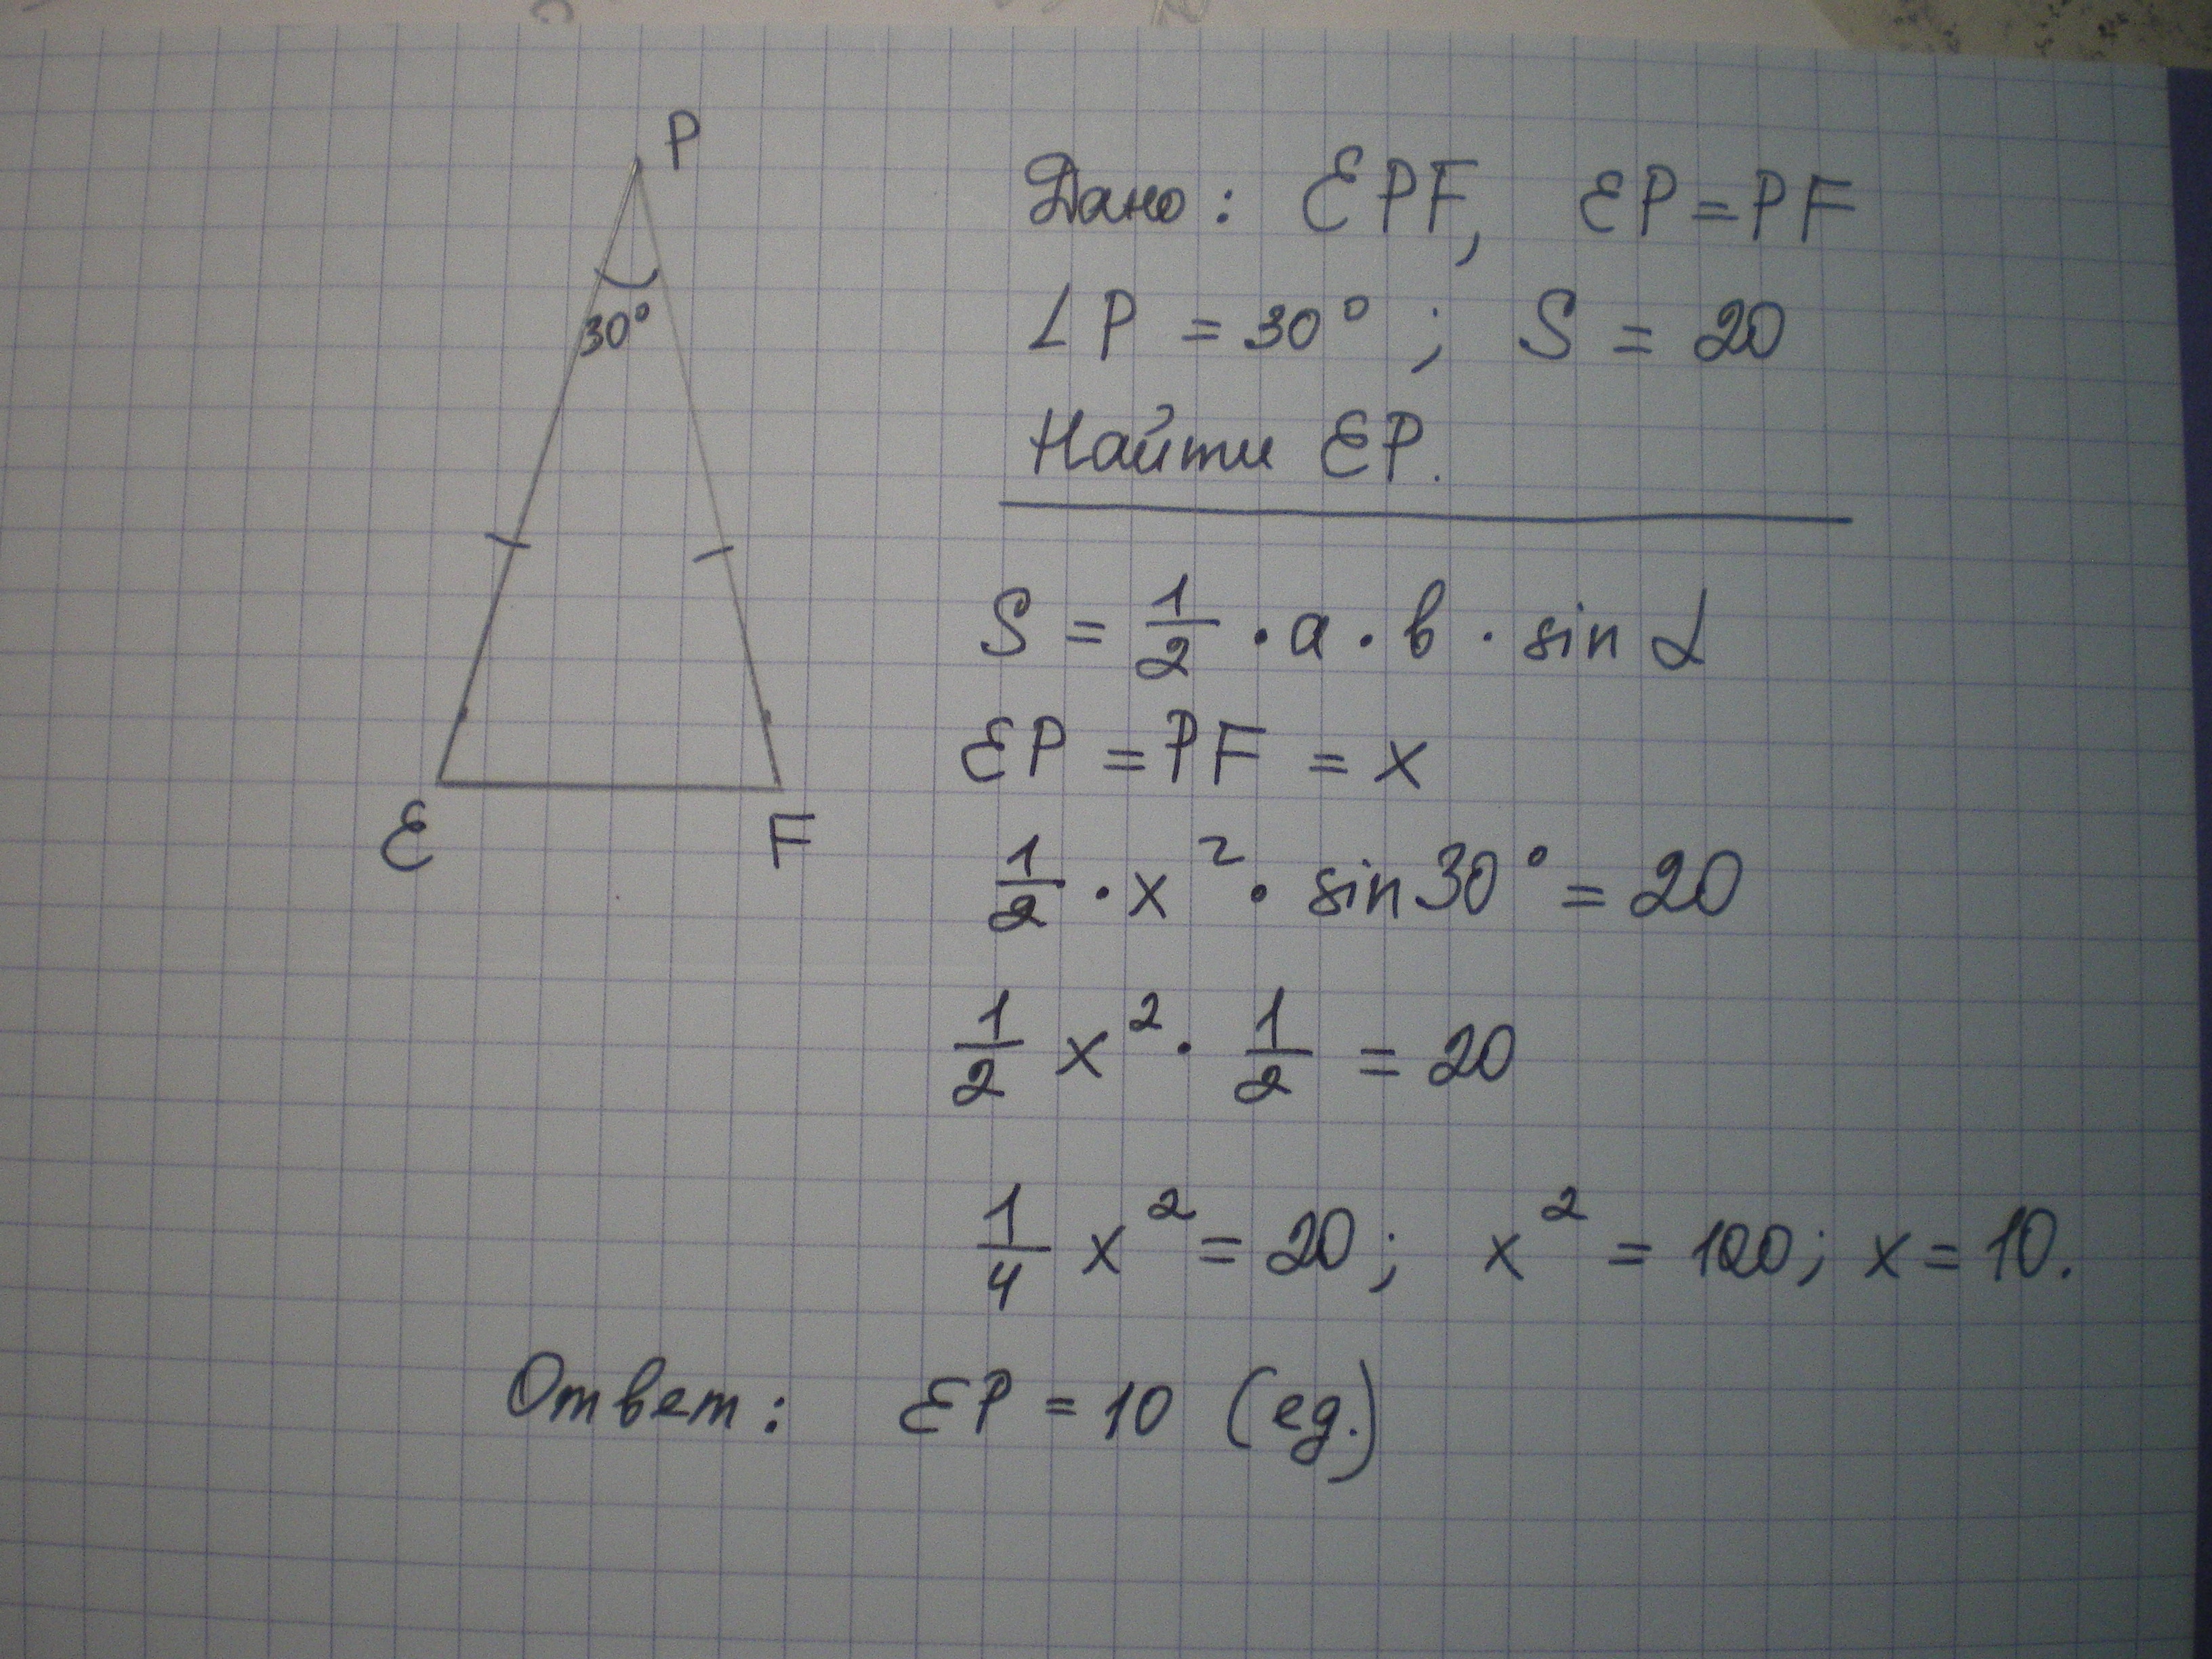 P
30°
E F
Дано: EPF, EP = PF
∠P = 30°; S = 20
Найти EP.
S = 1/2 · a · b · sin α
EP = PF = x
1/2 · x² · sin 30° = 20
1/2 x² · 1/2 = 20
1/4 x² = 20; x² = 100; x = 10.
Ответ: EP = 10 (ед.)